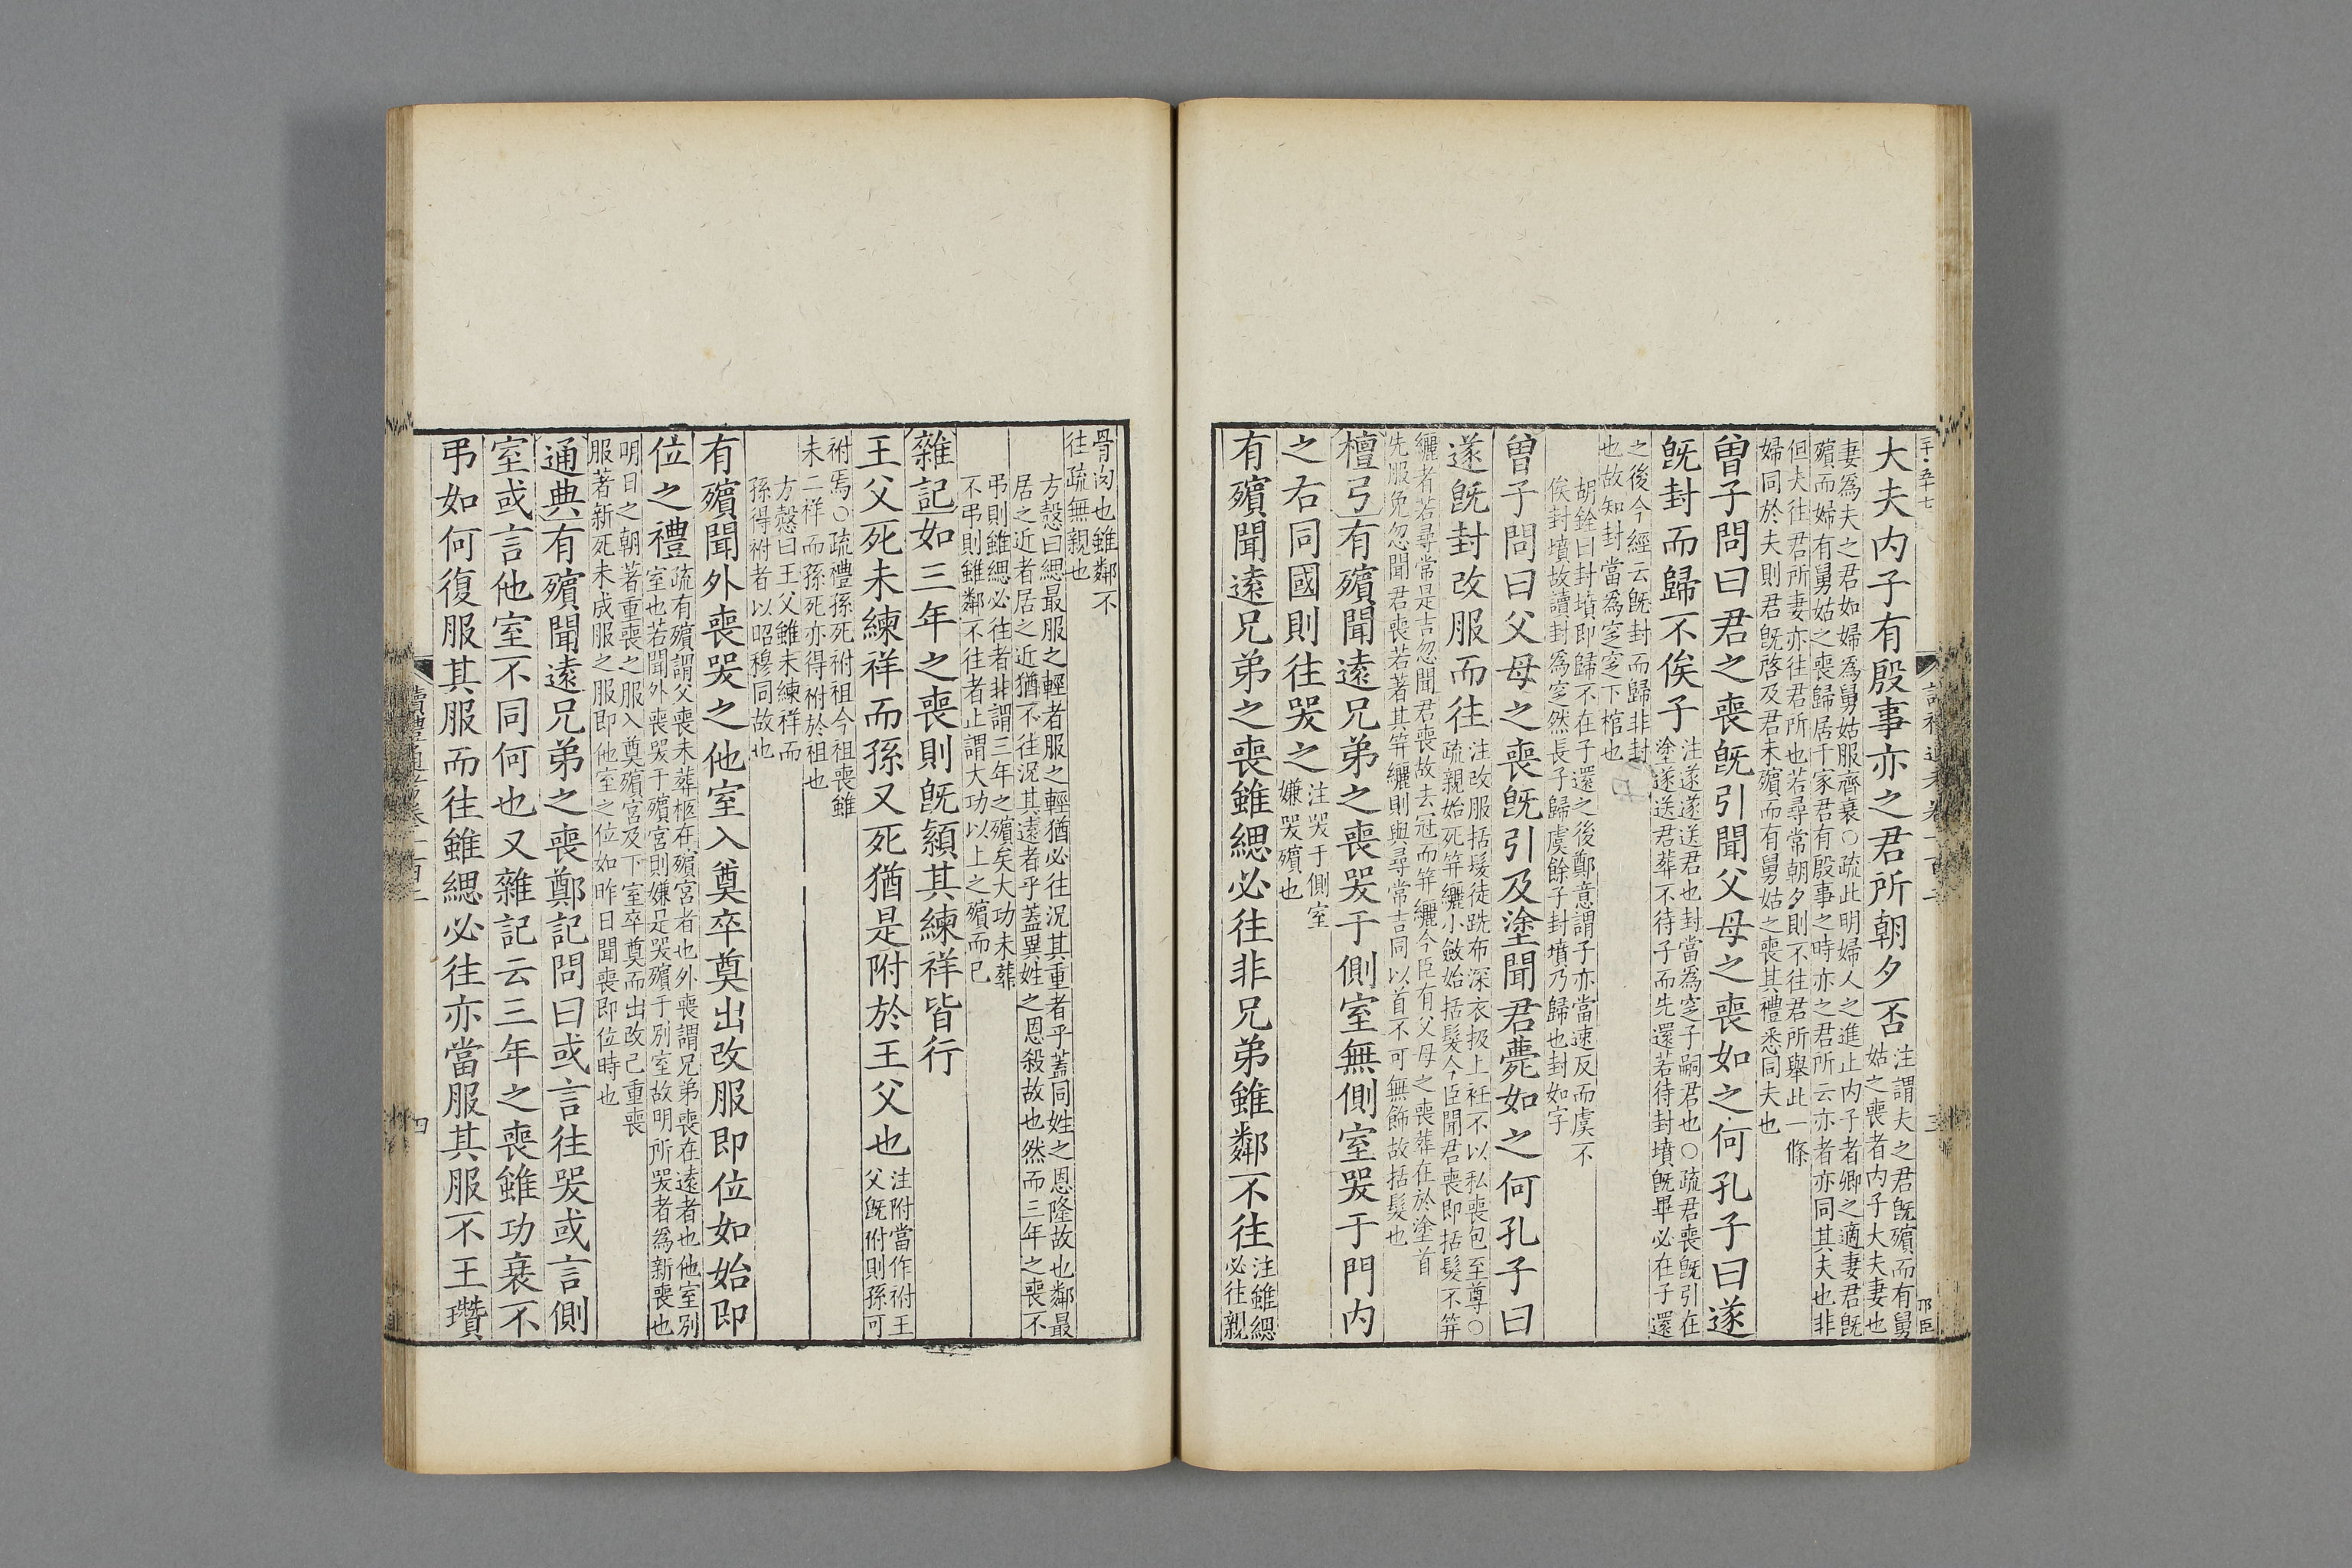 大夫内子有殷事亦之君所朝夕否注謂夫之君既殯而有舅
姑之喪者内子大夫妻也
妻為夫之君如婦為舅姑服齊衰○疏此明婦人之進止内子者卿之適妻君既
殯而婦有舅姑之喪歸居于家君有殷事之時亦之君所云亦者亦同其夫也非
但夫往君所妻亦往君所也若尋常朝夕則不往君所舉此一條
婦同於夫則君既啓及君未殯而有舅姑之喪其禮悉同夫也
曾子問曰君之喪既引聞父母之喪如之何孔子曰遂
既封而歸不俟子注遂遂送君也封當為窆子嗣君也○疏君喪既引在
塗遂送君葬不待子而先還若待封墳既畢必在子還
之後今經云既封而歸非封
也故知封當為窆窆下棺也
胡銓曰封墳即歸不在子還之後鄭意謂子亦當速反而虞不
俟封墳故讀封為窆然長子歸虞餘子封墳乃歸也封如字
曾子問曰父母之喪既引及塗聞君薨如之何孔子曰
遂既封改服而往注改服括髮徒跣布深衣扱上衽不以私喪包至尊○
疏親始死笄纚小斂始括髮今臣聞君喪即括髮不笄
纚者若尋常是吉忽聞君喪故去冠而笄纚今臣有父母之喪葬在於塗首
先服免忽聞君喪若著其笄纚則與尋常吉同以首不可無飾故括髮也
檀弓有殯聞遠兄弟之喪哭于側室無側室哭于門内
之右同國則往哭之注哭于側室
嫌哭殯也
有殯聞遠兄弟之喪雖緦必往非兄弟雖鄰不往注雖緦
必往親
骨肉也雖鄰不
往疏無親也
方慤曰緦最服之輕者服之輕猶必往況其重者乎蓋同姓之恩隆故也鄰最
居之近者居之近猶不往況其遠者乎蓋異姓之恩殺故也然而三年之喪不
弔則雖緦必往者非謂三年之殯矣大功未葬
不弔則雖鄰不往者止謂大功以上之殯而已
雜記如三年之喪則既顈其練祥皆行
王父死未練祥而孫又死猶是附於王父也注附當作祔王
父既附則孫可
祔焉○疏禮孫死祔祖今祖喪雖
未二祥而孫死亦得祔於祖也
方慤曰王父雖未練祥而
孫得祔者以昭穆同故也
有殯聞外喪哭之他室入奠卒奠出改服即位如始即
位之禮疏有殯謂父喪未葬柩在殯宮者也外喪謂兄弟喪在遠者也他室别
室也若聞外喪哭于殯宮則嫌是哭殯于别室故明所哭者為新喪也
明日之朝著重喪之服入奠殯宮及下室卒奠而出改己重喪
服著新死未成服之服即他室之位如昨日聞喪即位時也
通典有殯聞遠兄弟之喪鄭記問曰或言往哭或言側
室或言他室不同何也又雜記云三年之喪雖功衰不
弔如何復服其服而往雖緦必往亦當服其服不王瓚
讀禮通考卷一百二
四